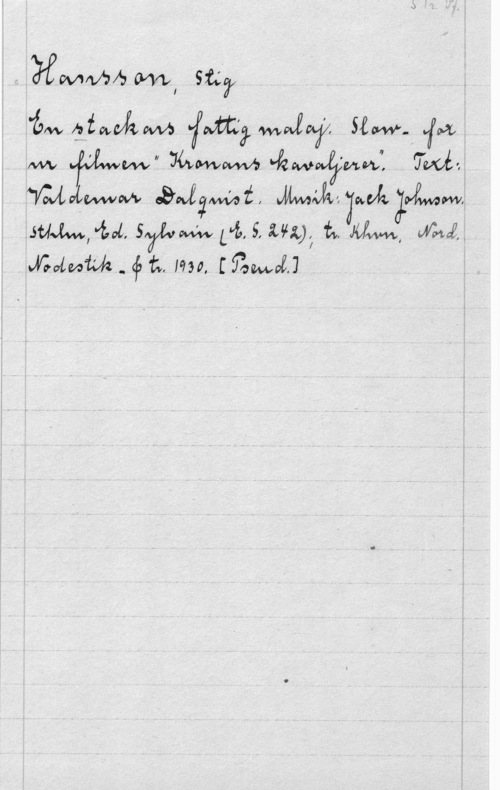 Hansson, Stig
En stackars fattig malaj. Slow-fox
ur filmen "Kronans kavaljerer". Text:
Valdemar Dalquist. Musik: Jack Johnson.
Sthlm, Ed. Sylvain (E. S. 242), tr. Khvn, Nord.
Nodestik-
tr. 1930. [Pseud.]